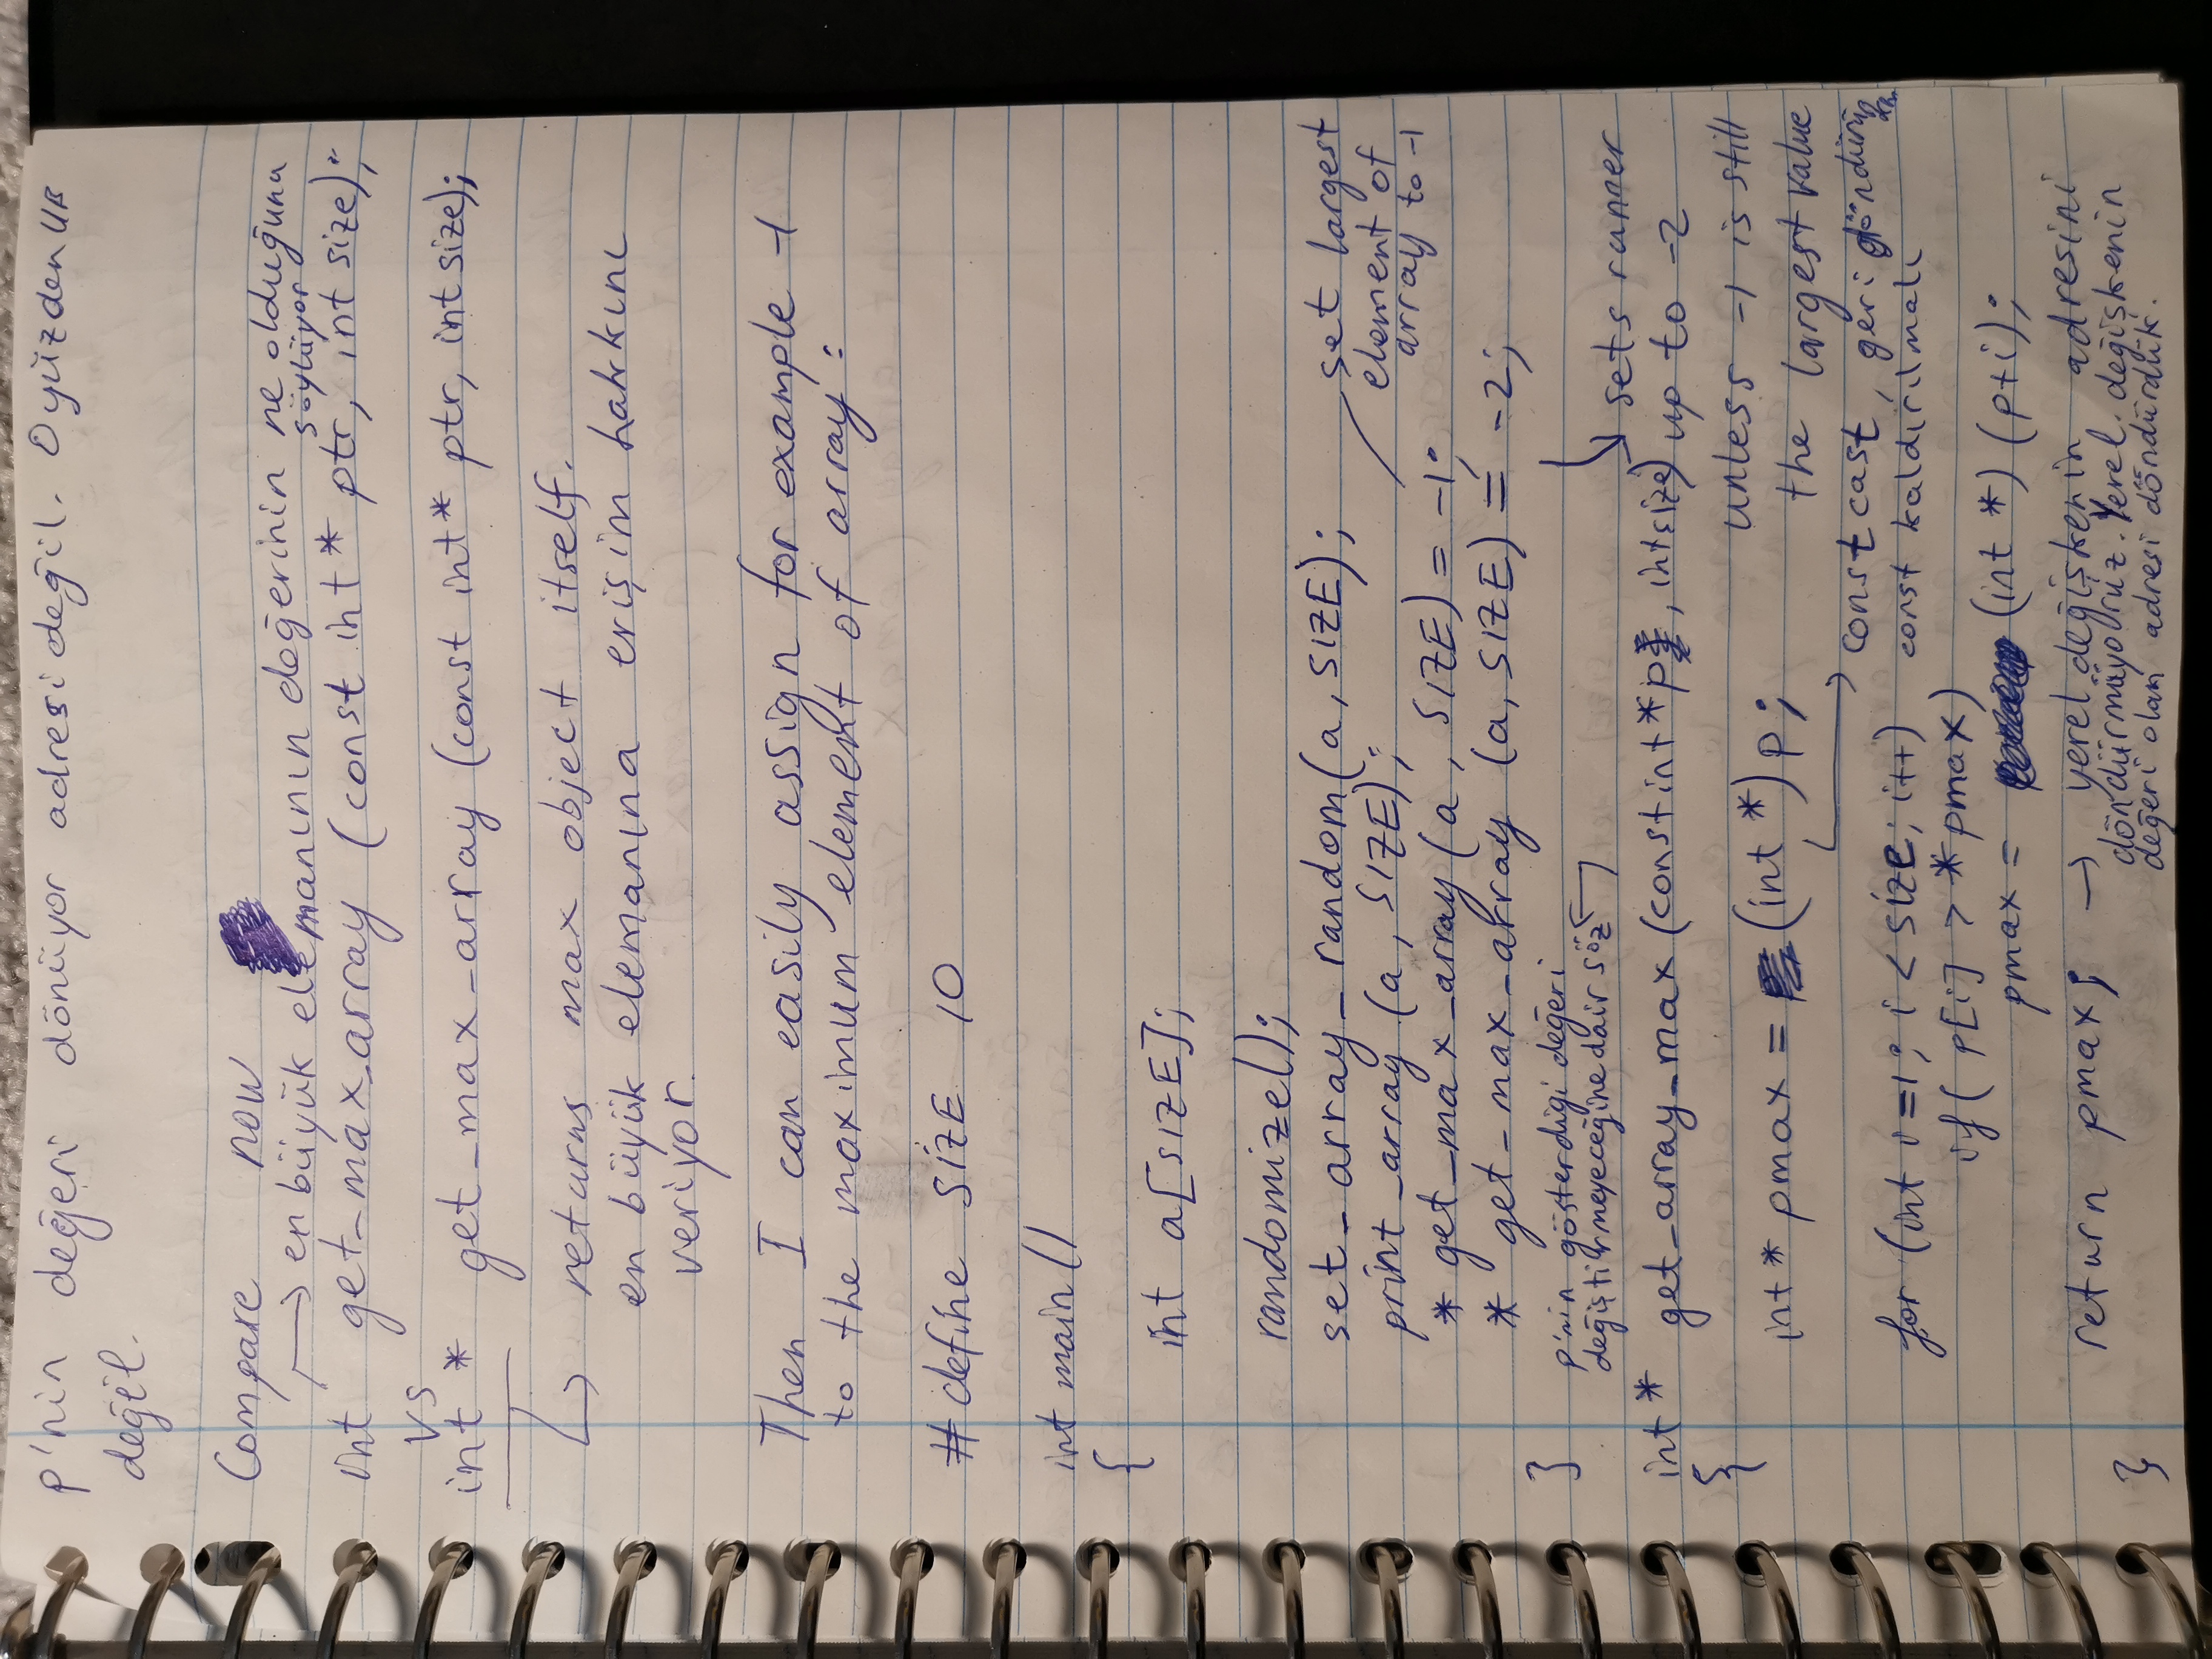 p'nin değeri dönüyor adresi değil. O yüzden UB
değil.
Compare now
→ en büyük elemanının değerinin ne olduğunu
söylüyor
int get_max_array (const int* ptr, int size);
vs
int * get_max_array (const int* ptr, int size);
returns max object itself.
en büyük elemanına erişim hakkını
veriyor.
Then I can easily assign for example -1
to the maximum element of array :
#define SİZE 10
int main()
{
int a[SIZE];
randomize();
set_array_random(a, SIZE);
set largest
element of
array to -1
print_array (a, SIZE);
* get_max_array (a, SIZE) = -1;
* get_max_array (a, SIZE) = -2;
}
p'nin gösterdigi değeri
değiştirmeyeceğine dair söz
sets runner
up to -2
unless -1 is still
the largest value
int* get_array_max (const int* p, int size)
{
int* pmax = (int *) p;
const cast, geri
const kaldırılmalı
for (int i=1; i < size; i++)
if( p[i] > *pmax)
pmax = (int *) (p+i);
return pmax; → yerel değişkenin adresini
döndürmüyoruz. Yerel. değişkenin
değeri olan adresi döndürdük.
}